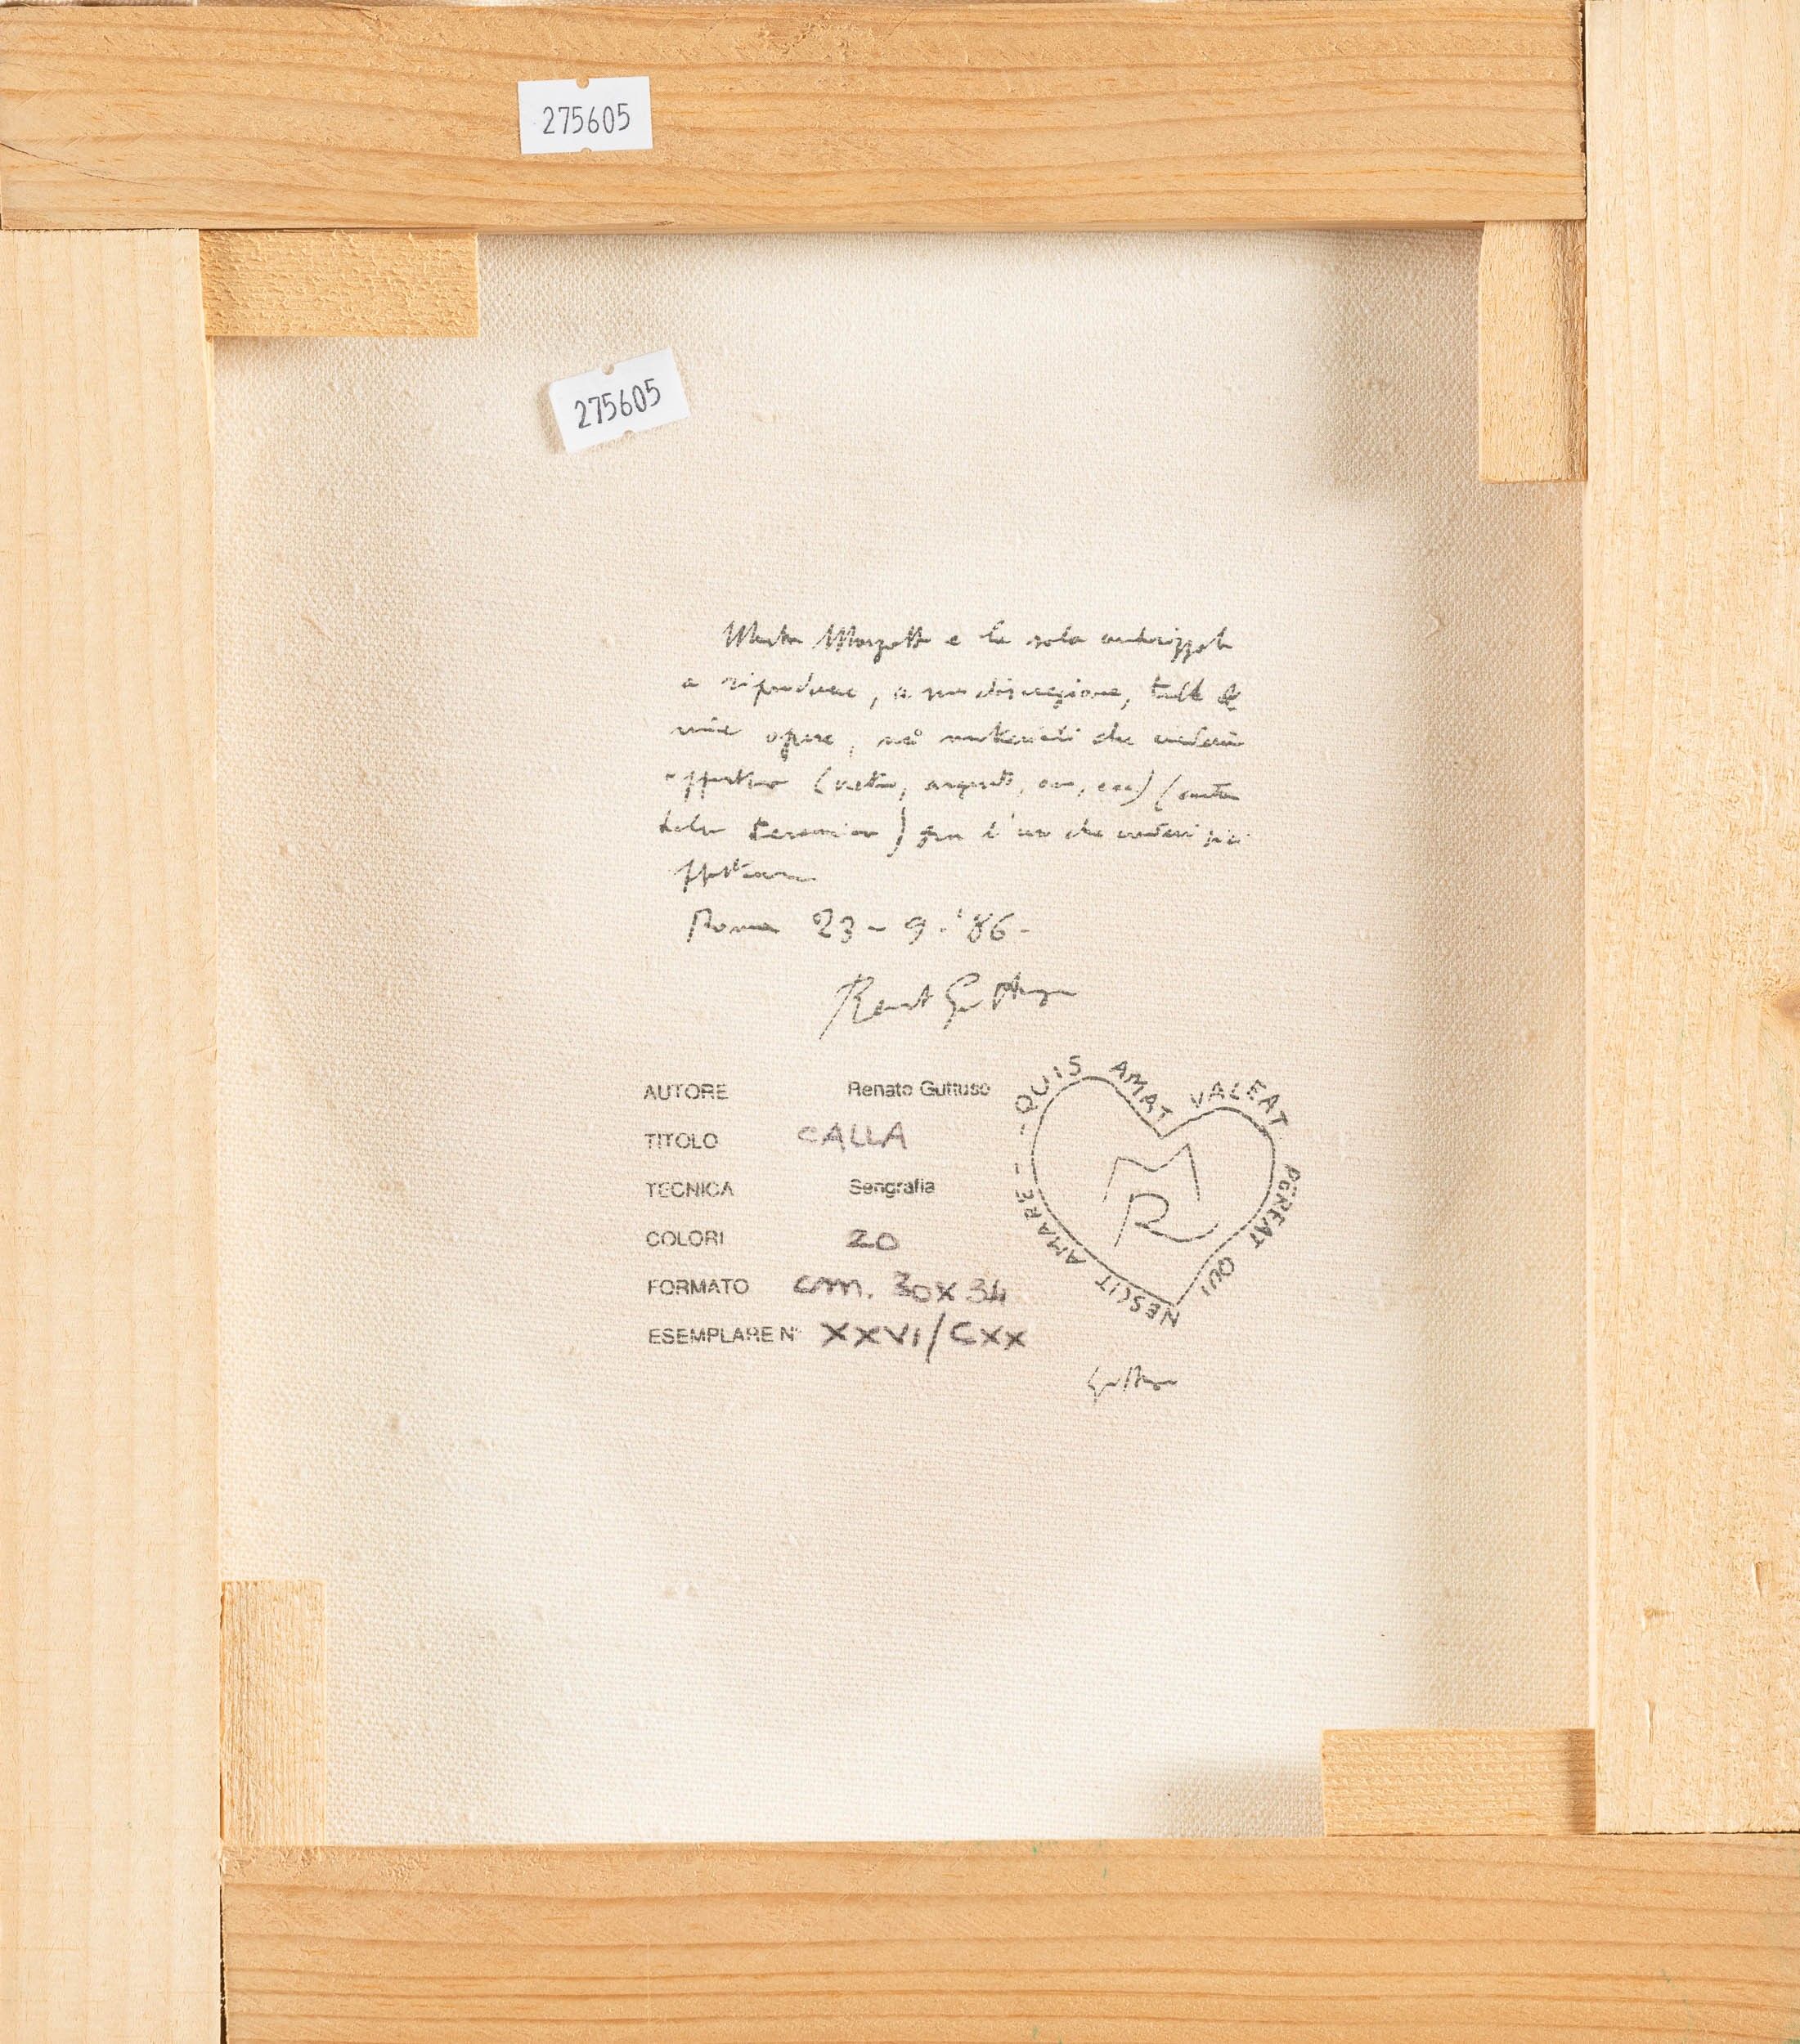 275605
275605
Marta Marzotto e la sola autorizzata
a riprodurre, a sua discrezione, tutte le
mie opere, nei materiali che crederà
opportuno (vetro, argento, oro, ecc) (carta
tela ) per l'uso che crederà più
Roma 23-9-'86-
Renato Guttuso
AUTORE Renato Guttuso
TITOLO CALLA
TECNICA Serigrafia
COLORI 20
FORMATO cm. 30x34
ESEMPLARE N° XXVI/CXX
-QUIS AMAT VALEAT PEREAT QUI NESCIT AMARE-
MR
Guttuso